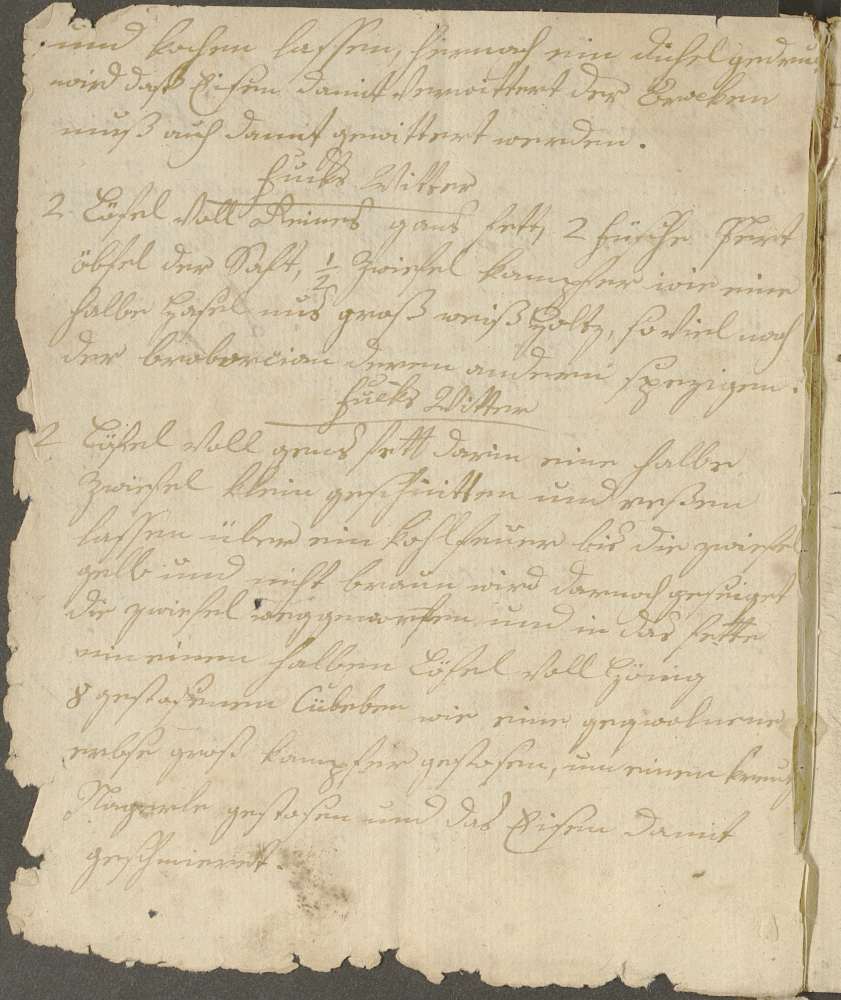 und kochen lassen, hernach ein dichel gedruc
wird daß Eisen damit verwittert der Brocken
muß auch damit gewittert werden.
Fucks Witter
2 Löfel voll Reines gans fett, 2 füsche
öbfel der Saft, 1/2 Zwiefel kampfer wie eine
halbe Hasel nus groß weiß Holtz, so viel nach
der broborcion deren andern spezigen.
Fucks Witter
2 Löfel voll gens fett darin eine halbe
Zwiefel klein geschnitten und resten
lassen über ein kohlfeuer bis die zwiefel
gelb und nicht braun wird darnach geseiget
die zwiefel weggeworfen und in das fette
ein einen halben Löfel voll Hönig
8 gestosenen Cübeben wie eine geqwolnene
erbse groß kampfer gestosen, um einen kreuz
Nagerle gestosen und das Eisen damit
geschmieret.